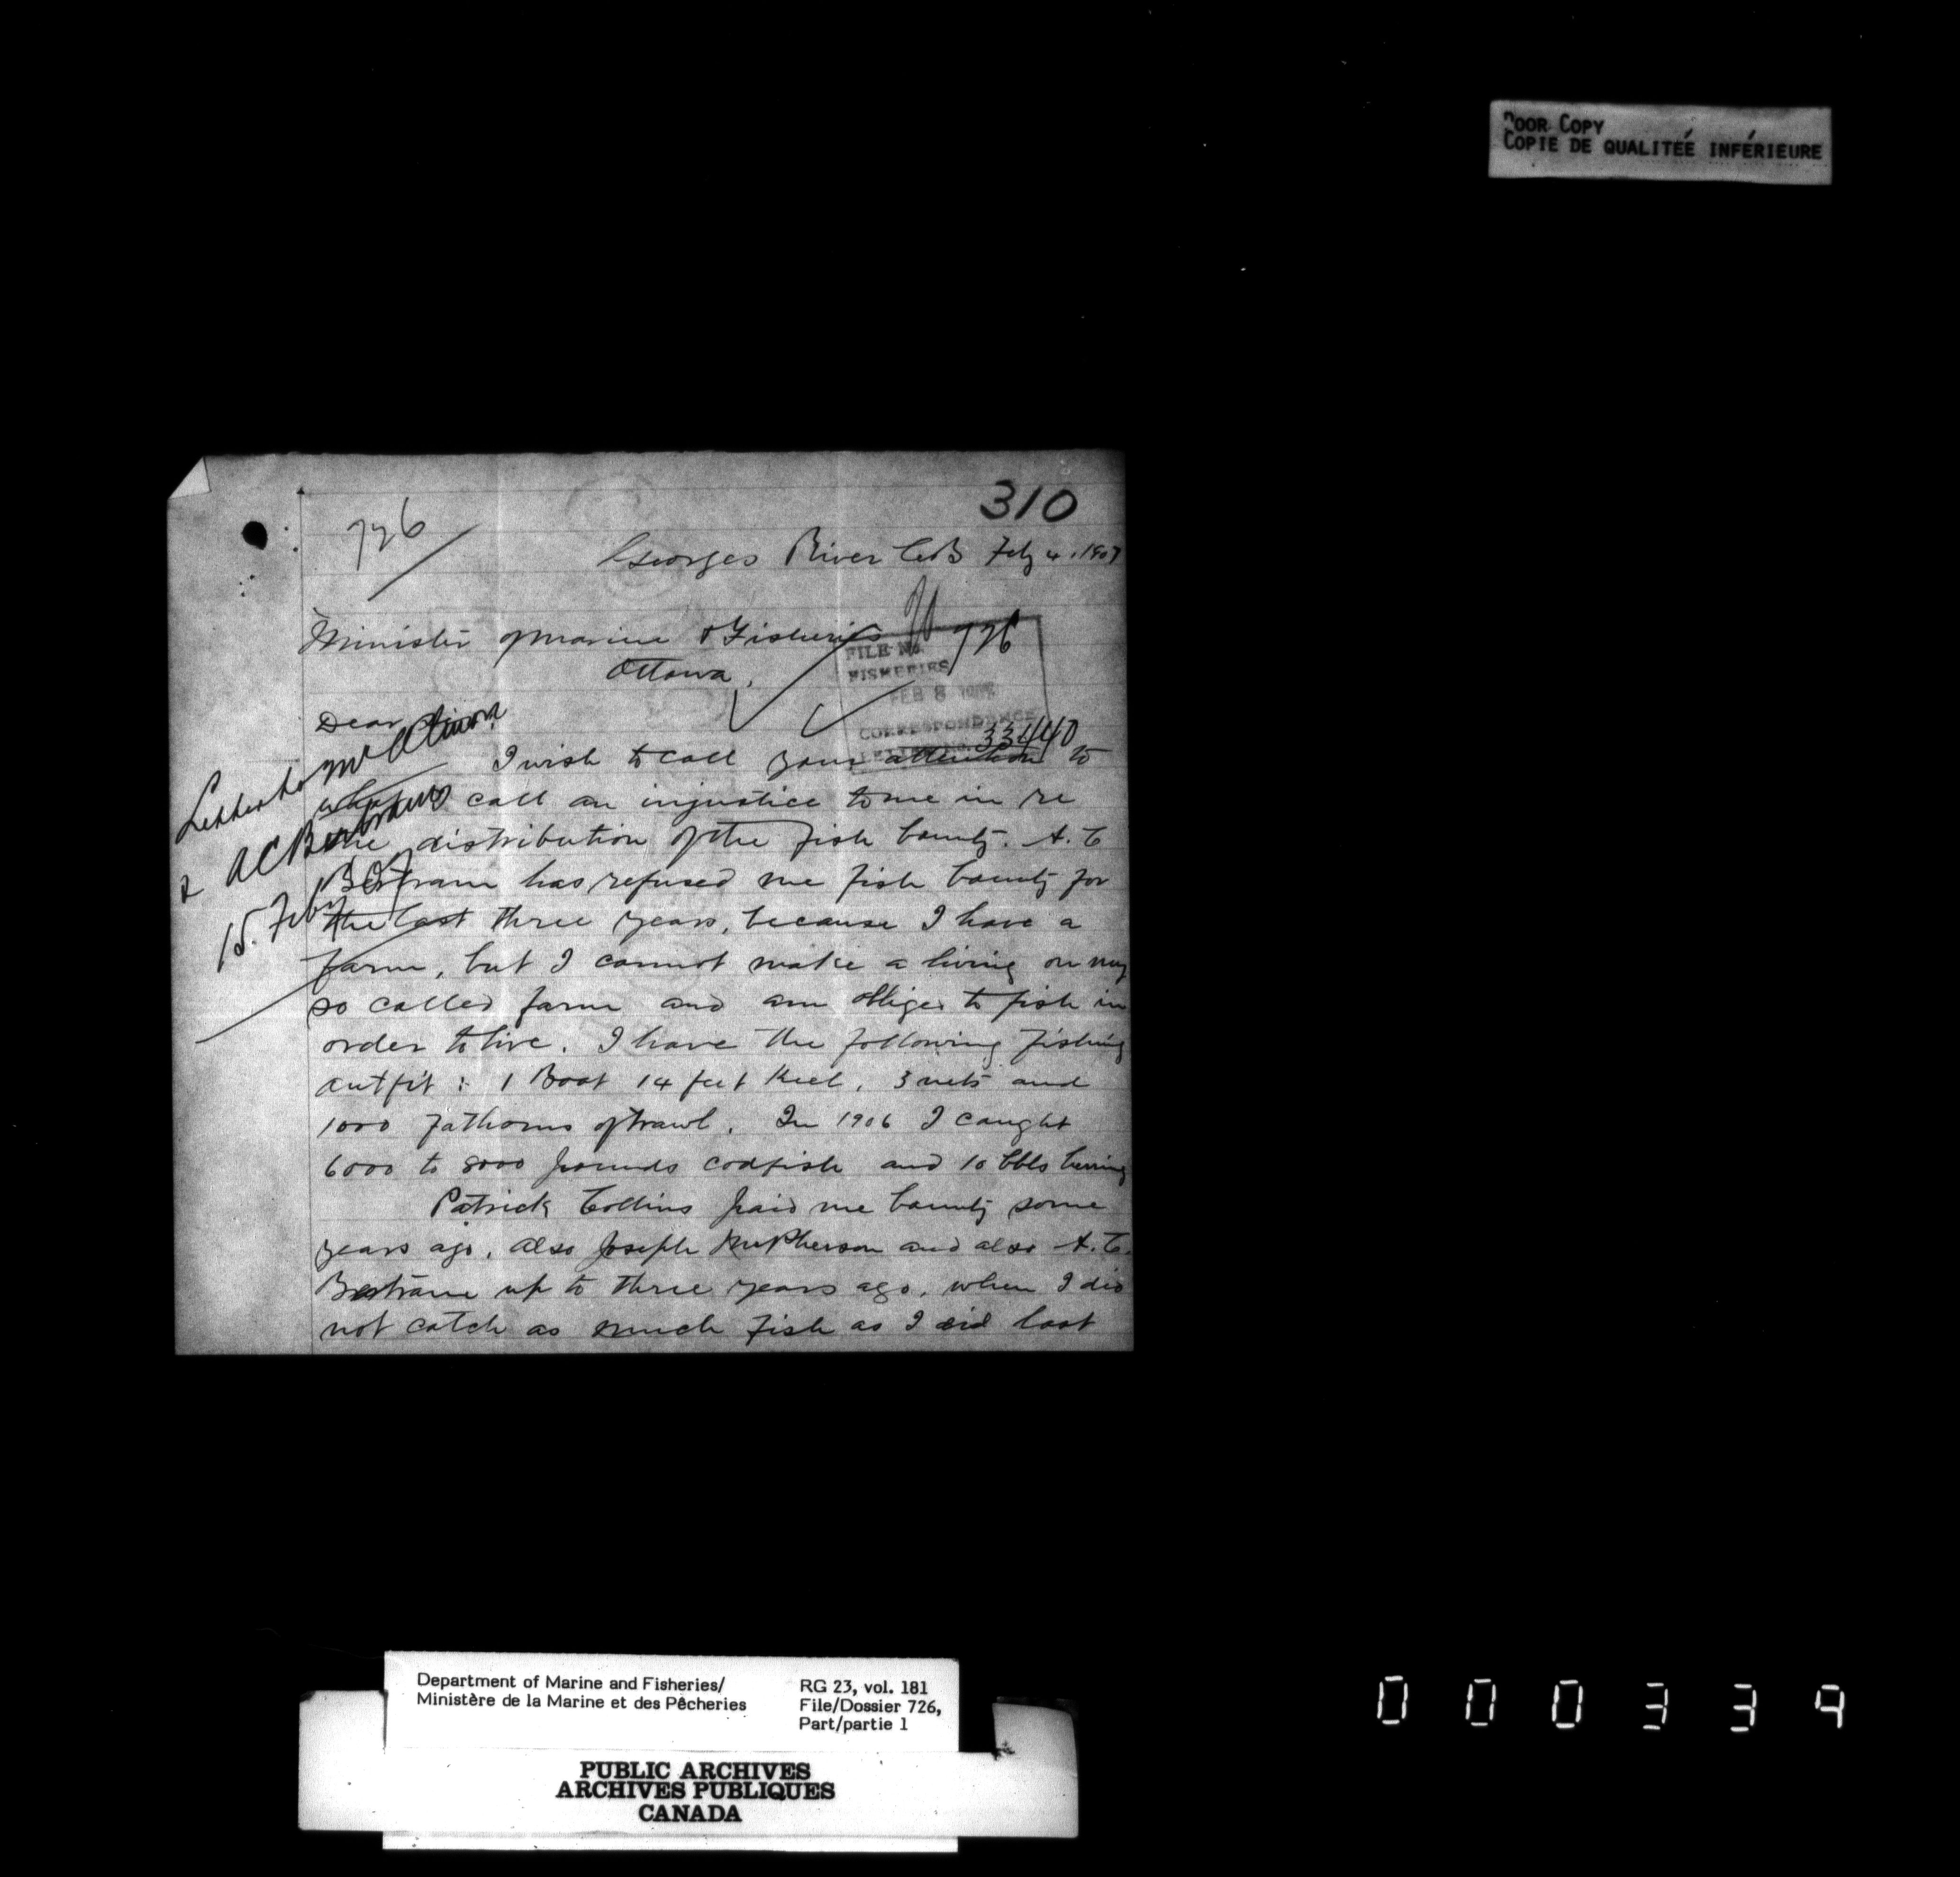 POOR COPY
COPIE DE QUALITEÉ INFÉRIEURE
310
726
Georges River C.B Feby 4, 1907
Minister of Marine & Fisheries
Ottawa.
726
FILE No.
FISHERIES
FEB 8
CORRESPONDENCE
LETTER No. 33440
Dear
I wish to call your attention to
what I call an injustice to me in re
the distribution of the fish bounty. A. C
Bertram has refused me fish bounty for
the last three years, because I have a
farm, but I cannot make a living on my
so called farm and am obliged to fish in
order to live. I have the following fishing
outfit: 1 Boat 14 feet keel, 3 nets and
1000 fathoms of trawl. In 1906 I caught
6000 to 8000 pounds codfish and 10 bbls herring
Patrick Collins paid me bounty some
years ago, also Joseph McPherson and also A. C.
Bertram up to three years ago, when I did
not catch as much fish as I did last
Letter to
& A C Bertram
15. Feby 1907
Department of Marine and Fisheries/
Ministère de la Marine et des Pêcheries
RG 23, vol. 181
File/Dossier 726,
Part/partie 1
PUBLIC ARCHIVES
ARCHIVES PUBLIQUES
CANADA
000339